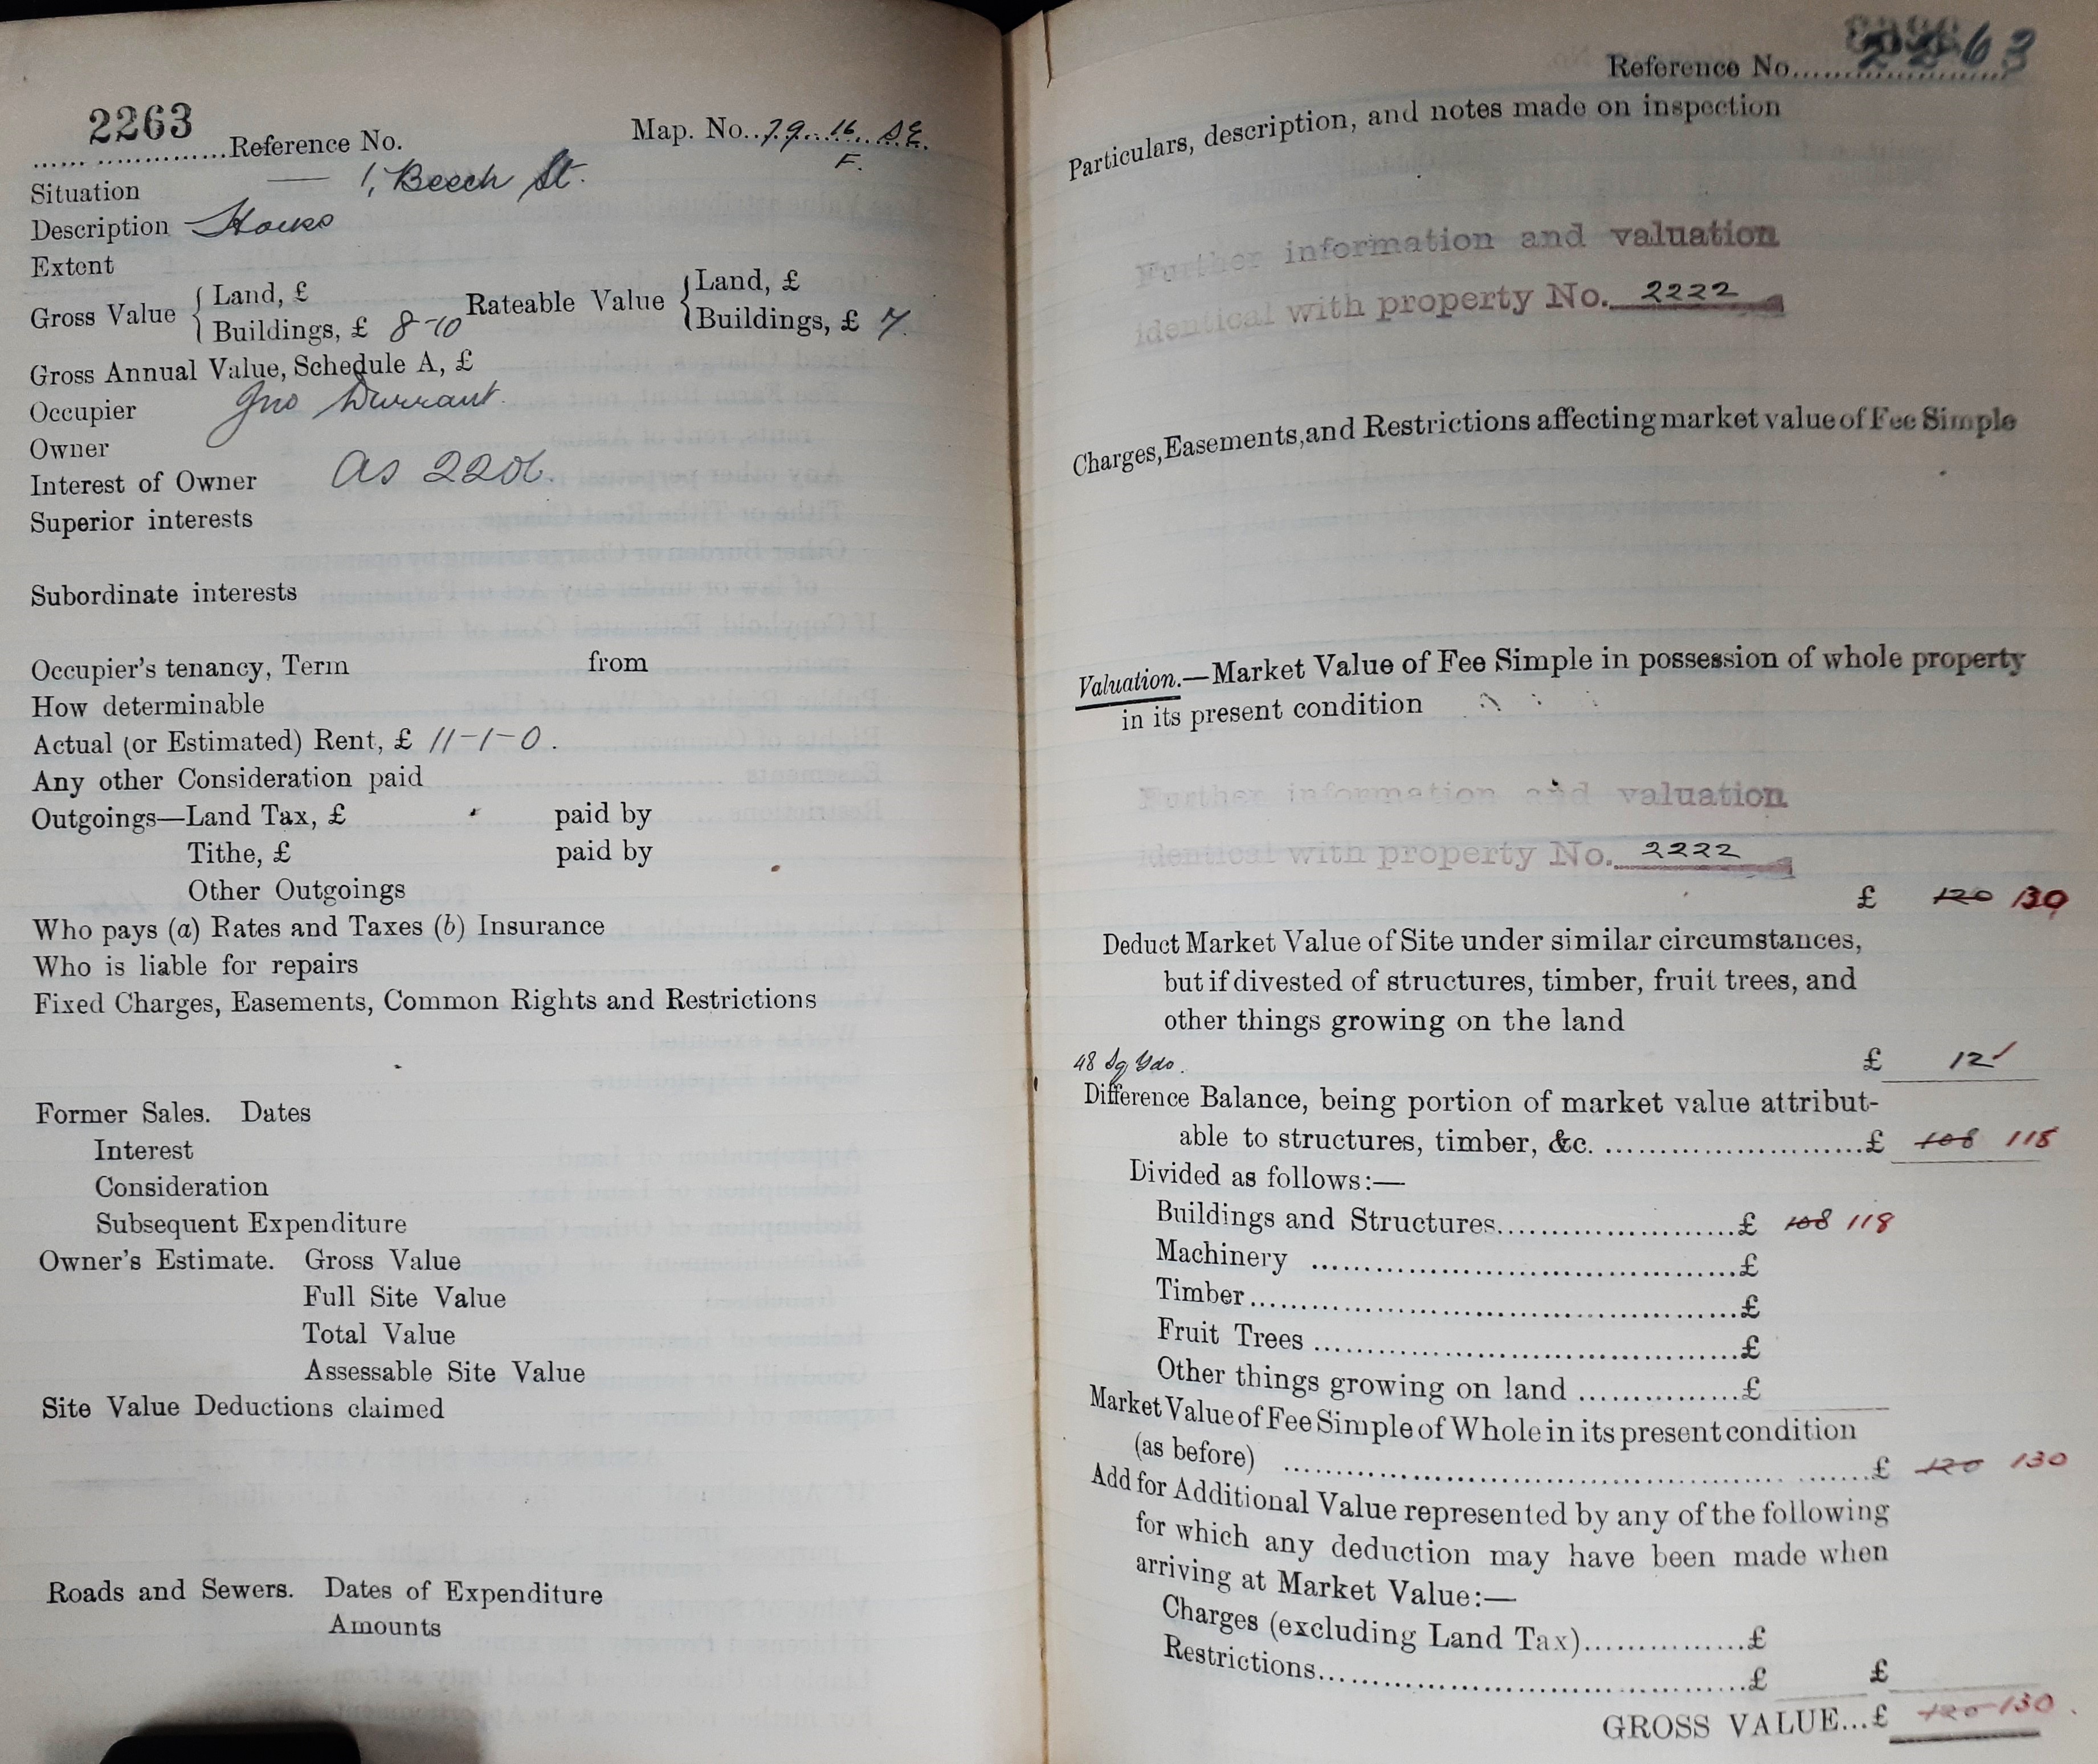 2263
Reference No.
Map. No. 79. 16. S.E.
F.
Situation — 1, Beech St.
Description House
Extent
Gross Value { Land, £
Buildings, £ 8-10
Rateable Value { Land, £
Buildings, £ 7.
Gross Annual Value, Schedule A, £
Occupier Jno Durrant.
Owner
Interest of Owner As
Superior interests
Subordinate interests
Occupier's tenancy, Term from
How determinable
Actual (or Estimated) Rent, £ 11-1-0.
Any other Consideration paid
Outgoings—Land Tax, £ paid by
Tithe, £ paid by
Other Outgoings
Who pays (a) Rates and Taxes (b) Insurance
Who is liable for repairs
Fixed Charges, Easements, Common Rights and Restrictions
Former Sales. Dates
Interest
Consideration
Subsequent Expenditure
Owner's Estimate. Gross Value
Full Site Value
Total Value
Assessable Site Value
Site Value Deductions claimed
Roads and Sewers. Dates of Expenditure
Amounts
Reference No. 2263
Particulars, description, and notes made on inspection
Further information and valuation
identical with property No. 2222
Charges, Easements, and Restrictions affecting market value of Fee Simple
Valuation.—Market Value of Fee Simple in possession of whole property
in its present condition
Further information and valuation
identical with property No. 2222
£ 120 130
Deduct Market Value of Site under similar circumstances,
but if divested of structures, timber, fruit trees, and
other things growing on the land
48 Sq Yds. £ 12
Difference Balance, being portion of market value attribut-
able to structures, timber, &c. £ 108 118
Divided as follows:—
Buildings and Structures £ 108 118
Machinery £
Timber £
Fruit Trees £
Other things growing on land £
Market Value of Fee Simple of Whole in its present condition
(as before) £ 120 130
Add for Additional Value represented by any of the following
for which any deduction may have been made when
arriving at Market Value:—
Charges (excluding Land Tax) £
Restrictions £ £
GROSS VALUE...£ 120 130